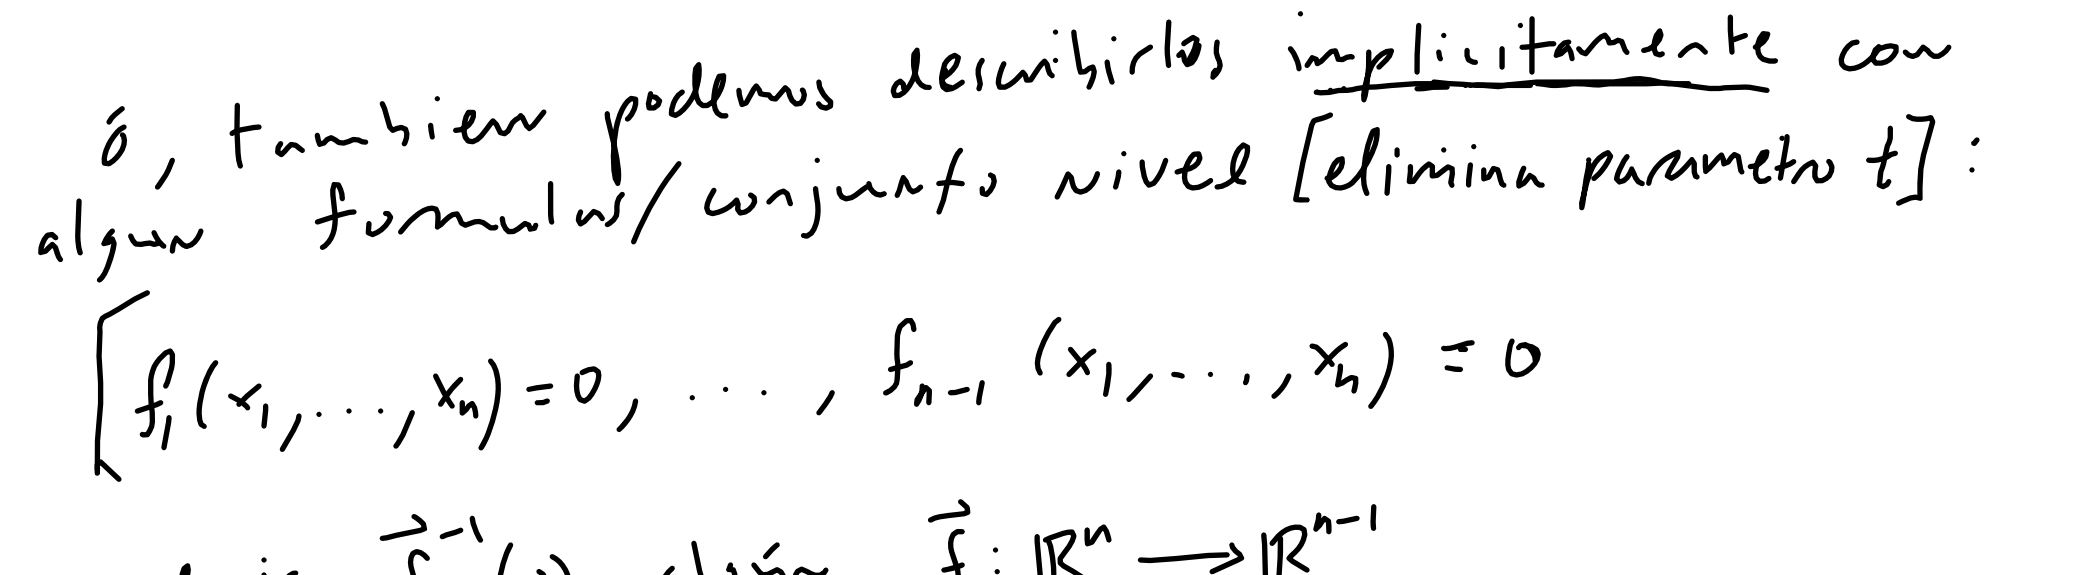 ó, tambien podemos describirlos implicitamente con
algun formulas/conjunto nivel [elimina parametro t]:
[f₁(x₁,...,xₙ)=0, ..., fₙ₋₁(x₁,...,xₙ)=0
f⃗⁻¹( f⃗: ℝⁿ → ℝⁿ⁻¹